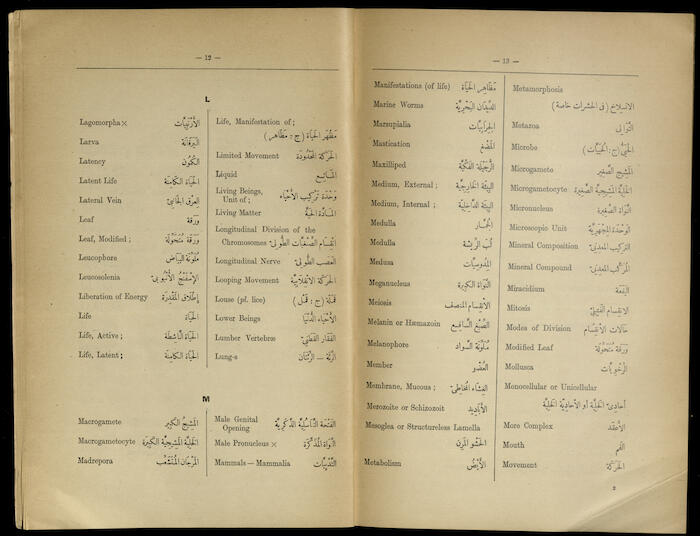 — 12 —
L
Lagomorpha × الأرنبيَّات
Larva اليرقانة
Latency الكُمُون
Latent Life الحياة الكامنة
Lateral Vein العِرْق الجانبىّ
Leaf ورقة
Leaf, Modified ; ورقة متحوِّلة
Leucophore ملونة البياض
Leucosolenia الإسفنج الأنبوبىّ
Liberation of Energy إطلاق المقدرة
Life الحياة
Life, Active ; الحياة الناشطة
Life, Latent ; الحياة الكامنة
Life, Manifestation of ;
مظهر الحياة (ج : مظاهر)
Limited Movement الحركة المحدودة
Liquid المائع
Living Beings,
Unit of ; وحدة تركيب الأحياء
Living Matter المادَّة الحيَّة
Longitudinal Division of the
Chromosomes انقسام الصبغيَّات الطولىّ
Longitudinal Nerve العصب الطولىّ
Looping Movement الحركة الانقلابيَّة
Louse (pl. lice) قملة (ج : قمل)
Lower Beings الأحياء الدنيا
Lumber Vertebræ الفقار القطنىّ
Lung-s الرئة — الرئتان
M
Macrogamete المشيج الكبير
Macrogametocyte الخليَّة المشيجيَّة الكبيرة
Madrepora المرجان المتشعب
Male Genital
Opening الفتحة التناسليَّة الذكريَّة
Male Pronucleus × النواة المذكرة
Mammals — Mammalia الثدييَّات
— 13 —
Manifestations (of life) مظاهر الحياة
Marine Worms الديدان البحريَّة
Marsupialia الجرابيَّات
Mastication المضغ
Maxilliped الرجيلة الفكيَّة
Medium, External ; البيئة الخارجيَّة
Medium, Internal ; البيئة الداخليَّة
Medulla
Medulla لب الريشة
Medusa المدوسيَّات
Meganucleus النواة الكبيرة
Meiosis الانقسام المنصف
Melanin or Hæmazoin الصبغ
Melanophore ملونة السواد
Member العضو
Membrane, Mucous ; الغشاء المخاطىّ
Merozoite or Schizozoit
Mesoglea or Structureless Lamella
الحشو المرن
Metabolism الأيض
Metamorphosis
الانسلاخ (فى الحشرات خاصة)
Metazoa التوالى
Microbe
Microgamete المشيج الصغير
Microgametocyte الخليَّة المشيجيَّة الصغيرة
Micronucleus النواة الصغيرة
Microscopic Unit الوحدة المجهريَّة
Mineral Composition التركيب المعدنىّ
Mineral Compound المركب المعدنىّ
Miracidium
Mitosis الانقسام الفتيلىّ
Modes of Division حالات الانقسام
Modified Leaf ورقة متحوِّلة
Mollusca الرخويَّات
Monocellular or Unicellular
أحادىّ الخليَّة أو الأحاديَّة الخليَّة
More Complex الأعقد
Mouth الفم
Movement الحركة
2